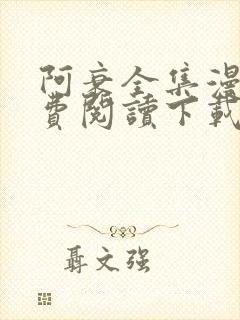 阿衰全集漫
费阅读下载
聂文强